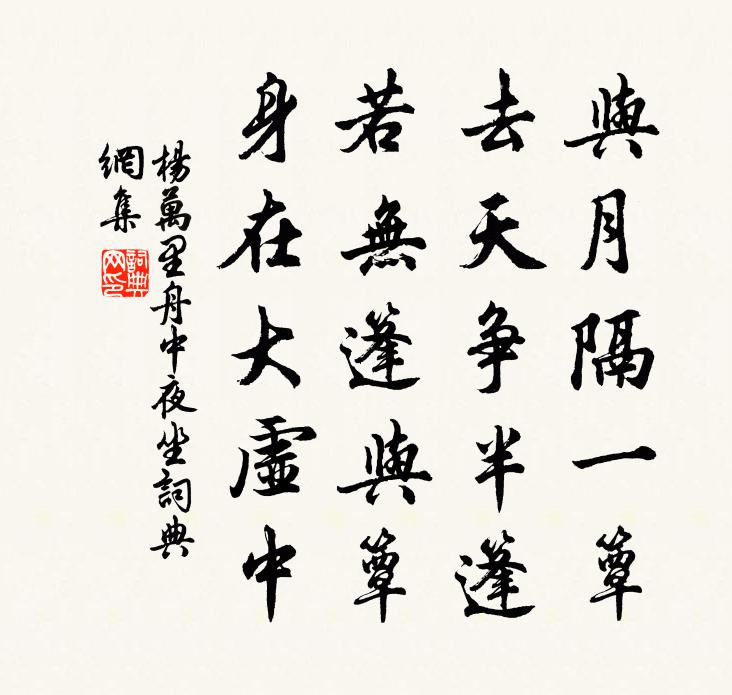 與月隔一簟
去天争半篷
若無篷與簟
身在大虛中
楊萬里舟中夜坐詞典
網集
詞典网印